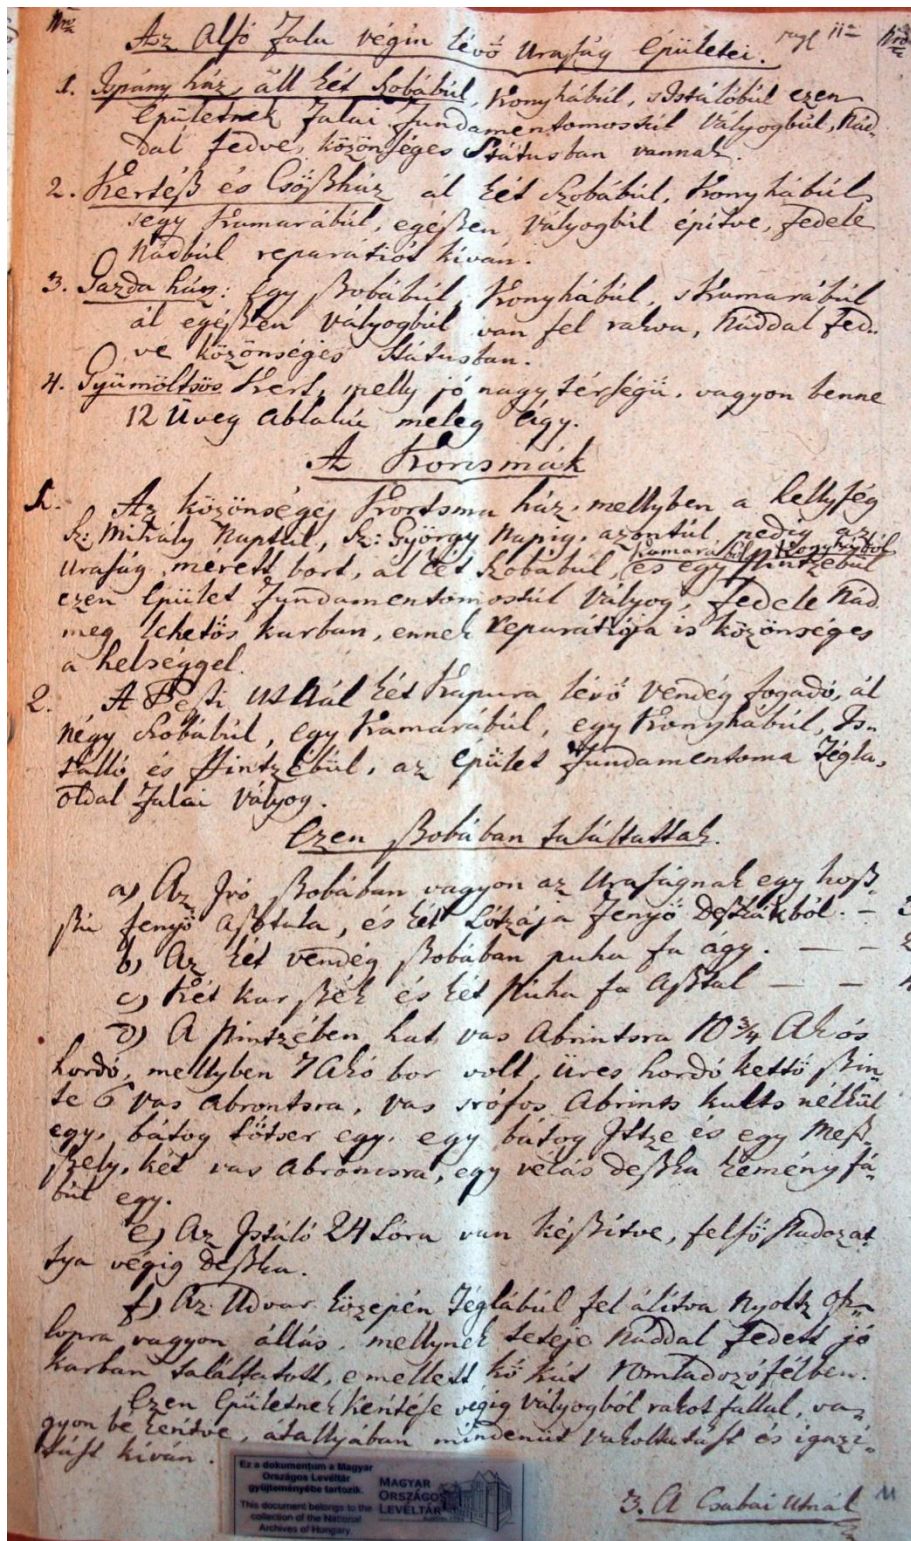 Nro
Az Alsó Falu végin lévő Uraság Épületei.
Nro
1. Ispány ház, áll két szobábúl, Konyhábúl, s Istálóbúl ezen
Épületnek Falai Fundamentomostúl Vályogbúl, Nád-
dal fedve, közönséges Státusban vannak.
2. Kertész és Csőszház ál két Szobábúl, Konyhábúl,
s egy Kamarábúl, egészen Vályogbúl építve, Fedele
Nádbúl reparátiót kíván.
3. Gazda ház: Egy szobábúl, Konyhábúl, s Kamarábúl
ál egészen Vályogbúl van fel rakva, Náddal Fed-
ve közönséges Státusban.
4. Gyümöltsös Kert, melly jó nagy térségű, vagyon benne
12 Üveg Ablakú meleg Ágy.
A Korsmák
1. Az közönséges Kortsma ház, mellyben a hellység
Sz: Mihály Naptúl, Sz: György Napig, azontúl pedig az
Uraság mérett bort, ál két Szobábúl, Kamarábúl Konyhábúl és egy Pintzébűl
ezen Épület Fundamentomostúl Vályog, Fedele Nád
meg lehetős karban, ennek reparátiója is közönséges
a helséggel.
2. A Pesti Utnál két Kapura lévő Vendég fogadó, ál
Négy Szobábúl, egy Kamarábúl, egy Konyhábúl, Is-
tálló és Pintzébűl, az épület Fundamentoma Tégla,
oldal Falai Vályog.
Ezen Szobában találtattak.
a) Az Ivó Szobában vagyon az Uraságnak egy hosz-
szú fenyő Asztala, és két Lótzája Fenyő Deszkákból. – 3
b) Az két vendég Szobában puha fa ágy. – – 2
c) Két kar szék és két Puha fa Asztal – – 4
d) A pintzében hat vas Abrintsra 10 3/4 Akós
hordó, mellyben 7 Akó bor volt, üres hordó kettő szin-
te 6 vas abrontsra, vas srófos Abrints kults nélkül
egy, bátog tőtser egy, egy bátog Ittze és egy Mesz-
szely, két vas abroncsra, egy vetás deszka kemény fá-
búl egy.
e) Az Istáló 24 Lóra van készítve, felső Padozat-
tya végig deszka.
f) Az Udvar közepén Téglábúl fel álitva Nyoltz Osz-
lopra vagyon állás, mellynek teteje Náddal Fedett jó
karban találtatott, e mellett kő kút romladozó félben.
Ezen Épületnek kerítése végig vályogból rakot fallal, va-
gyon be kerítve, átallyában mindenüt vakoltatást és igazi-
tást kíván.
3. A Csabai Utnál
11
Ez a dokumentum a Magyar
Országos Levéltár
gyűjteményébe tartozik.
This document belongs to the
collection of the National
Archives of Hungary.
MAGYAR
ORSZÁGOS
LEVÉLTÁR